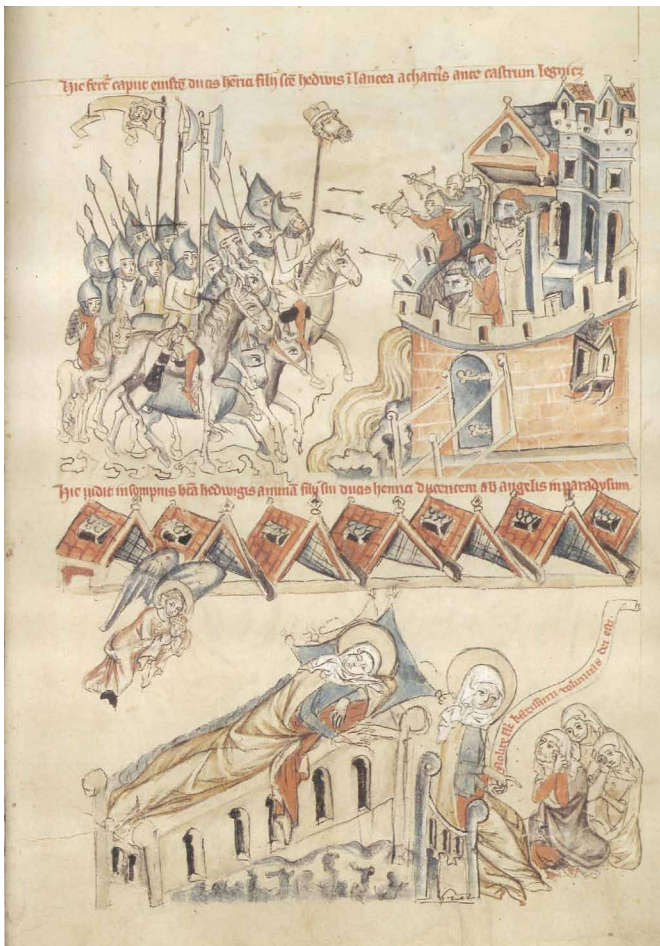 Hic fert̄ caput eiusdē ducis henrici filij sc̄e hedwis ī lancea a thart̄is ante castrum legnicz
Hic vidit in sompnis btā hedwigis animā filij sui ducis henrici ducentem ab angelis in paradysum
Nolite flē karissimi voluntas dei est